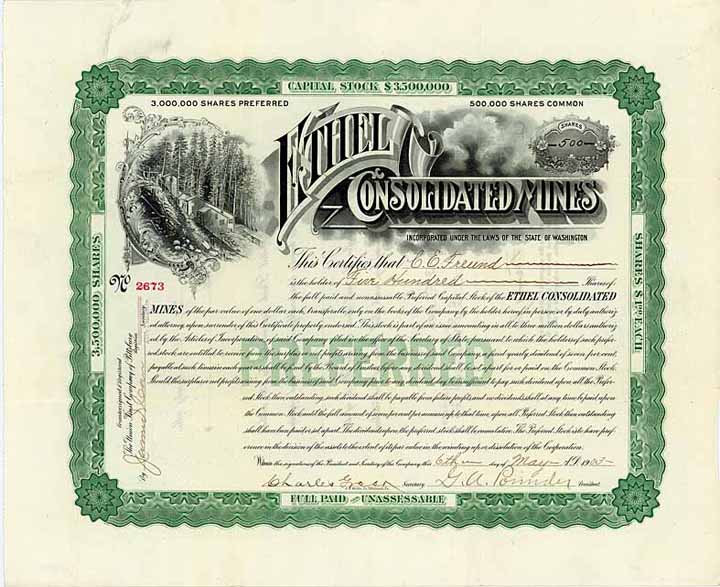 CAPITAL STOCK $3,500,000
3,000,000 SHARES PREFERRED
500,000 SHARES COMMON
ETHEL
CONSOLIDATED MINES
SHARES
500
INCORPORATED UNDER THE LAWS OF THE STATE OF WASHINGTON
3,500,000 SHARES
SHARES $1.00 EACH
No 2673
This Certifies that C. C. Freund
is the holder of Five Hundred Shares of
the full paid and unassessable Preferred Capital Stock of the ETHEL CONSOLIDATED
MINES of the par value of one dollar each, transferable only on the books of the Company by the holder hereof in person or by duly authoriz
ed attorney upon surrender of this Certificate properly endorsed. This stock is part of an issue amounting in all to three million dollars authoriz
ed by the Articles of Incorporation, State, pursuant to which the holders of such prefer
red stock are entitled to receive yearly dividend of seven per cent,
payable at such times in each year as shall be fixed by the Board of set apart for or paid on the Common Stock.
Should the surplus or net profits to pay such dividend upon all the Prefer
red Stock then outstanding, such dividend shall be payable from future profits and no dividend shall at any time be paid upon
the Common Stock until the full amount of seven per cent per annum up to that time, upon all Preferred Stock then outstanding
shall have been paid or set apart. The dividends upon the preferred stock shall be cumulative. The Preferred Stock is to have pref
erence in the division of the assets to the extent of its par value in the winding up or dissolution of the Corporation.
PREFERRED
Witness the signatures of the President and Secretary of the Company this 6th day of May A.D. 190
Charles Secretary G. A. President
Countersigned & Registered
The Union Trust Company of Pittsburg
Registrar
By
Secretary
FULL PAID AND UNASSESSABLE